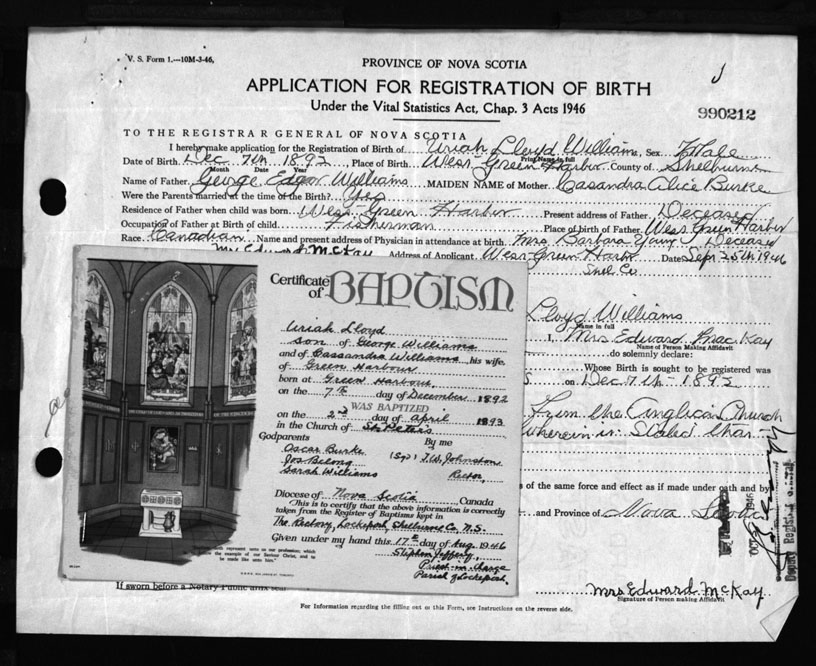 V. S. Form 1.—10M-3-46.
PROVINCE OF NOVA SCOTIA
APPLICATION FOR REGISTRATION OF BIRTH
Under the Vital Statistics Act, Chap. 3 Acts 1946
990212
TO THE REGISTRAR GENERAL OF NOVA SCOTIA
I hereby make application for the Registration of Birth of Uriah Lloyd Williams, Sex Male
Print Name in full
Date of Birth Dec 7th 1892, Place of Birth West Green Harbor County of Shelburne
Month Date Year
Name of Father George Edgar Williams MAIDEN NAME of Mother Casandra Alice Burke
Were the Parents married at the time of the Birth? Yes
Residence of Father when child was born West Green Harbor Present address of Father Deceased
Occupation of Father at Birth of child Fisherman Place of birth of Father West Green Harbor
Race Canadian Name and present address of Physician in attendance at birth Mrs Barbara Young Deceased
Mrs Edward McKay Address of Applicant West Green Harbor Date Sep 25th 1946
Shel Co
Lloyd Williams
Name in full
I, Mrs Edward MacKay
Name of Person Making Affidavit
do solemnly declare:
Whose Birth is sought to be registered was
on Dec 7th - 1892
From the Anglican Church
wherein is Stated that
s of the same force and effect as if made under oath and by
and Province of Nova
Mrs Edward McKay
Signature of Person making Affidavit
If sworn before a Notary Public affix seal
For Information regarding the filling out of this Form, see Instructions on the reverse side.
Certificate of BAPTISM
Uriah Lloyd
son of George Williams
and of Cassandra Williams his wife,
of Green Harbour
born at Green Harbour,
on the 7th day of December 1892
WAS BAPTIZED
on the 2nd day of April 1893
in the Church of St. Peters
By me
Godparents
Oscar Burke
(Sgd) T.W. Johnston
Rector,
Sarah Williams
Diocese of Nova Scotia Canada
This is to certify that the above information is correctly
taken from the Register of Baptisms kept in
The Rectory, Lockeport, Shelburne Co, N.S.
Given under my hand this 17th day of Aug. 1946
Stephen Jeffery,
Priest-in-charge
Parish of Lockeport.
represent unto us our profession; which
the example of our Saviour Christ, and to
be made like unto him."
Deputy Registrar